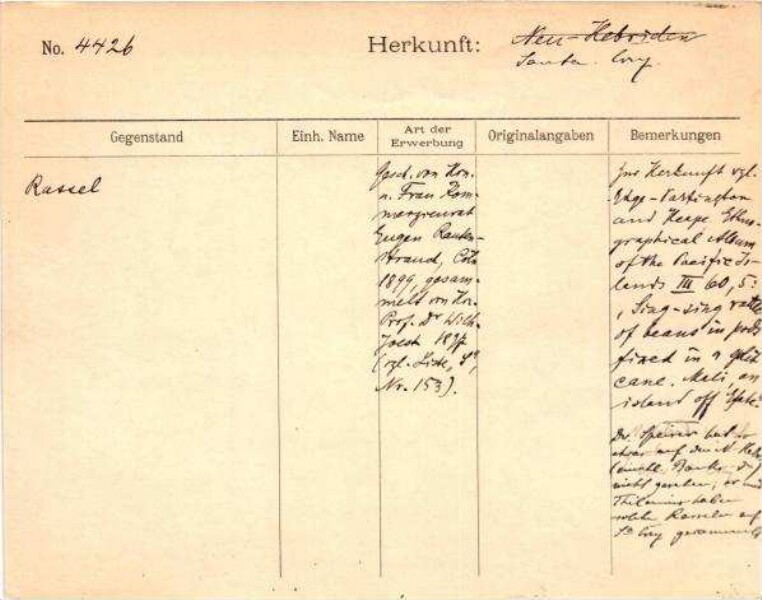 No. 4426
Herkunft: Neu-Hebriden
Santa Cruz.
Gegenstand
Einh. Name
Art der
Erwerbung
Originalangaben
Bemerkungen
Rassel
Gesch. von Hrn.
u. Frau Kom-
merzienrat
Eugen Rauten-
strauch, Cöln
1899, gesam-
melt von Hrn.
Prof. Dr Wilh.
Joest 1897
(vgl. Liste,
Nr. 153).
Zur Herkunft vgl.
Edge-Partington
and Heape Ethno-
graphical Album
of the Pacific Is-
lands III 60, 5:
"Sing-sing rattle
of beans in pods
fixed in a split
cane. Meli, an
island off Efate.
Dr. Speiser hat so
etwas auf den N. Hebr.
(einschl. Banks
nicht gesehen; er und
Thilenius haben
solche Rasseln auf
Sta Cruz gesammelt